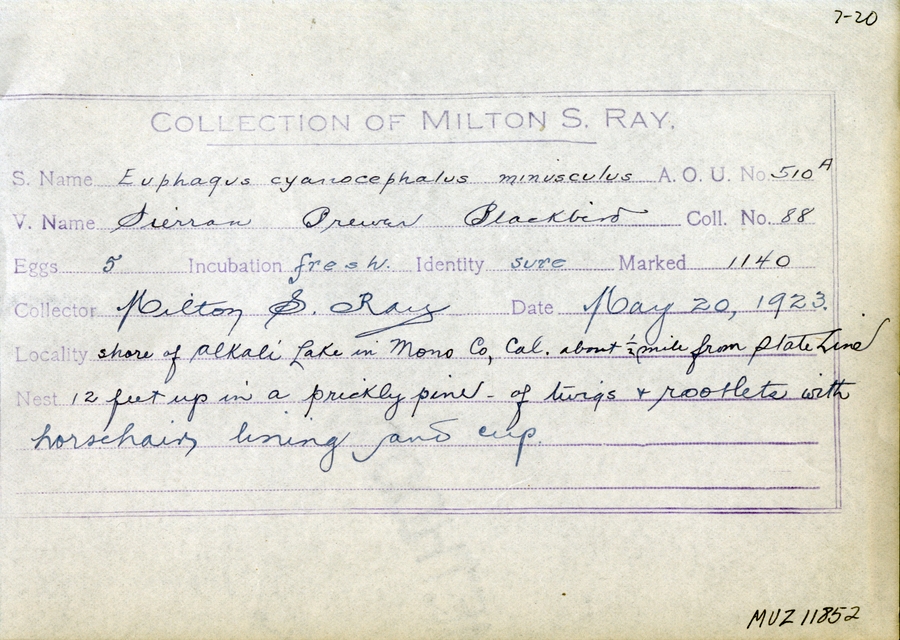 7-20
COLLECTION OF MILTON S. RAY.
S. Name Euphagus cyanocephalus minusculus A. O. U. No. 510A
V. Name Sierran Brewer Blackbird Coll. No. 88
Eggs 5 Incubation fresh. Identity sure Marked 1140
Collector Milton S. Ray Date May 20, 1923.
Locality shore of Alkali Lake in Mono Co, Cal. about ½ mile from State Line
Nest 12 feet up in a prickly pine - of twigs & rootlets with
horsehair lining and cup.
MUZ 11852